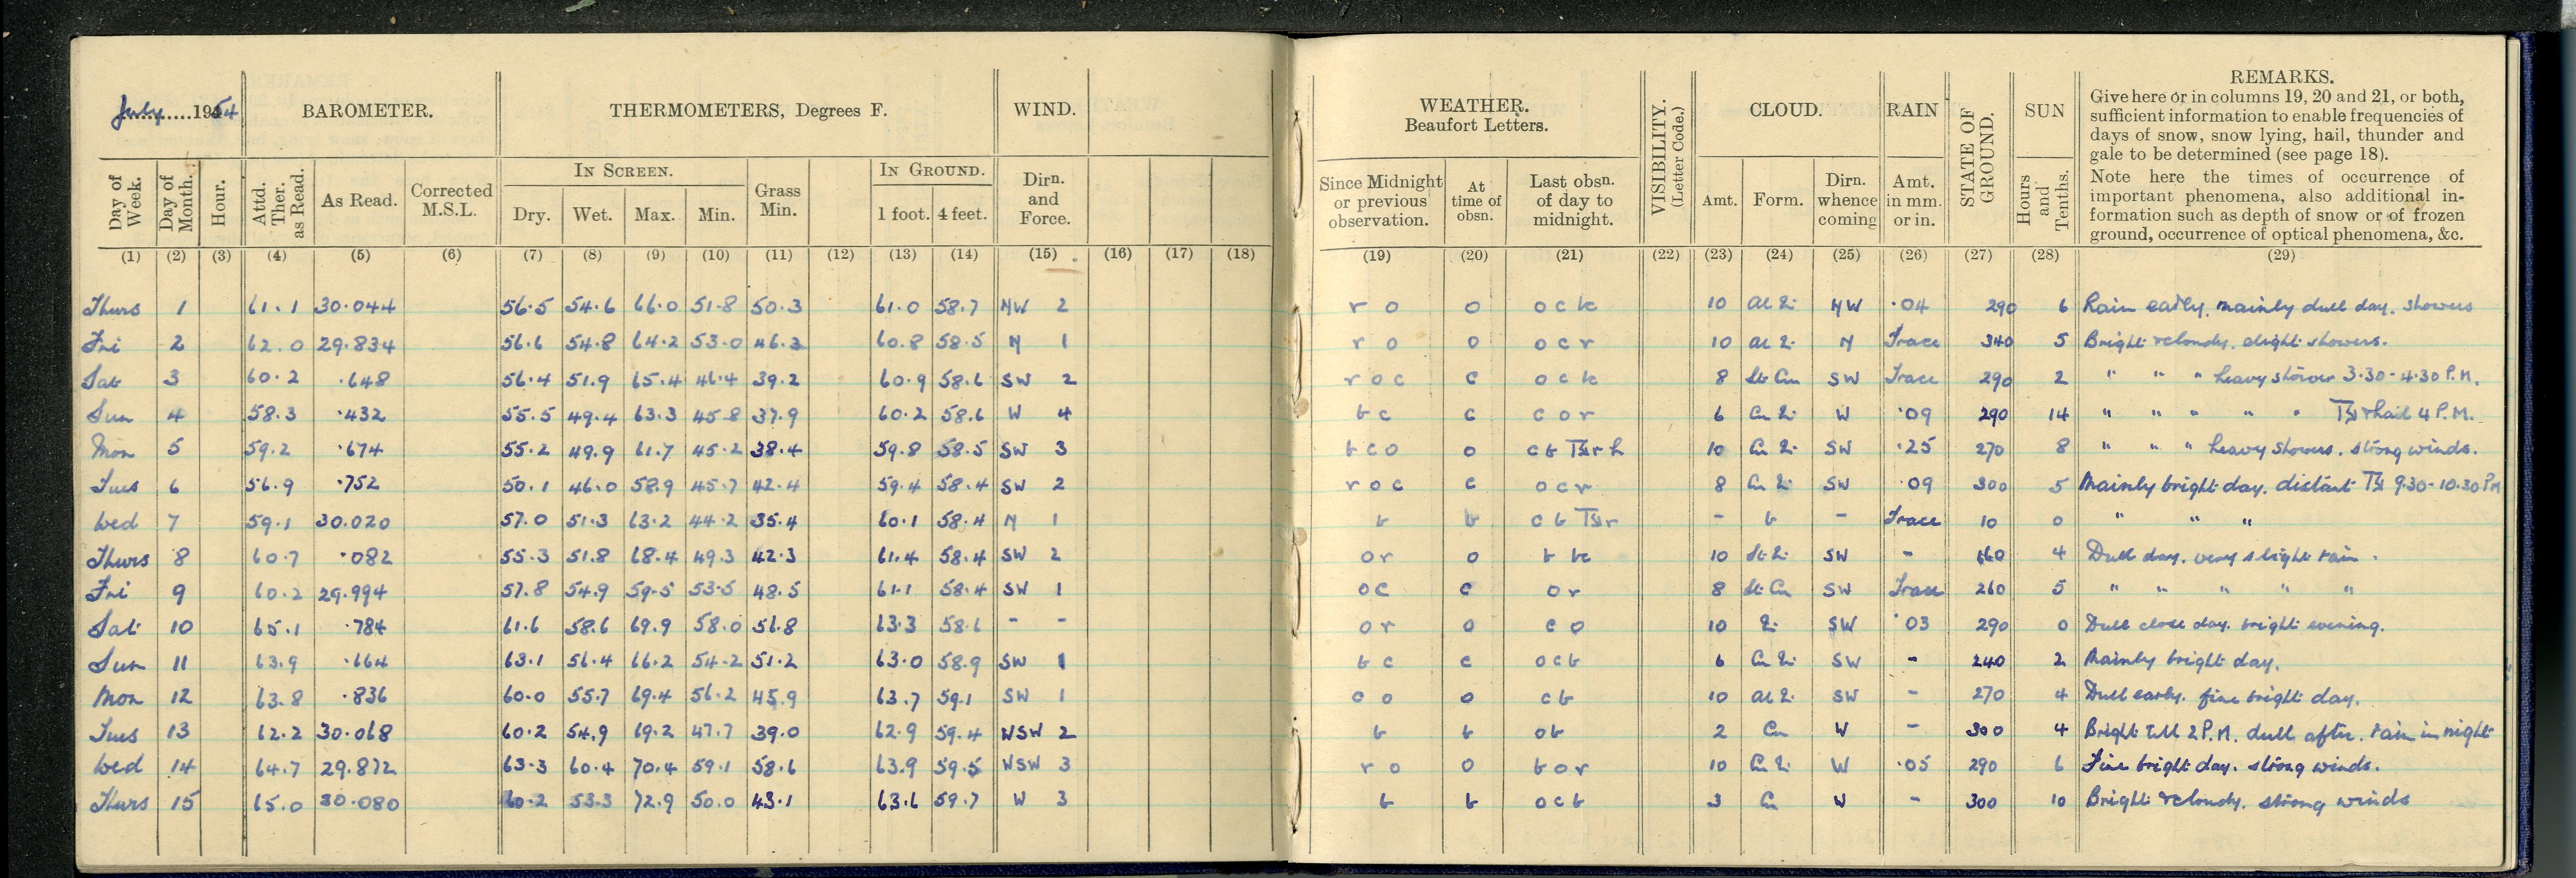 July 1954 BAROMETER. THERMOMETERS, Degrees F. WIND. WEATHER. Beaufort Letters. VISIBILITY. (Letter Code.) CLOUD. RAIN STATE OF GROUND. SUN REMARKS.
Give here or in columns 19, 20 and 21, or both,
sufficient information to enable frequencies of
days of snow, snow lying, hail, thunder and
gale to be determined (see page 18).
Note here the times of occurrence of
important phenomena, also additional in-
formation such as depth of snow or of frozen
ground, occurrence of optical phenomena, &c.
IN SCREEN. IN GROUND.
Day of Week. Day of Month. Hour. Attd. Ther. as Read. As Read. Corrected M.S.L. Dry. Wet. Max. Min. Grass Min. 1 foot. 4 feet. Dirn. and Force. Since Midnight or previous observation. At time of obsn. Last obsn. of day to midnight. Amt. Form. Dirn. whence coming Amt. in mm. or in. Hours and Tenths.
(1) (2) (3) (4) (5) (6) (7) (8) (9) (10) (11) (12) (13) (14) (15) (16) (17) (18) (19) (20) (21) (22) (23) (24) (25) (26) (27) (28) (29)
Thurs 1 61.1 30.044 56.5 54.6 66.0 51.8 50.3 61.0 58.7 NW 2 r o o o c 10 NW .04 290 6 Rain early, mainly dull day. showers
Fri 2 62.0 29.834 56.6 54.8 64.2 53.0 46.3 60.8 58.5 N 1 r o o o c r 10 N Trace 340 5 Bright & cloudy. slight showers.
Sat 3 60.2 .648 56.4 51.9 65.4 46.4 39.2 60.9 58.6 SW 2 r o c c o c 8 St Cu SW Trace 290 2 " " " heavy shower 3.30-4.30 P.M.
Sun 4 58.3 .432 55.5 49.4 63.3 45.8 37.9 60.2 58.6 W 4 b c c c o r 6 Cu W .09 290 14 " " " " " & hail 4 P.M.
Mon 5 59.2 .674 55.2 49.9 61.7 45.2 38.4 59.8 58.5 SW 3 b c o o c b r h 10 Cu SW .25 270 8 " " " heavy showers. strong winds.
Tues 6 56.9 .752 50.1 46.0 58.9 45.7 42.4 59.4 58.4 SW 2 r o c c o c r 8 Cu SW .09 300 5 Mainly bright day. distant 9.30-10.30 PM
Wed 7 59.1 30.020 57.0 51.3 63.2 44.2 35.4 60.1 58.4 N 1 b b c b r - b - Trace 10 0 " " "
Thurs 8 60.7 .082 55.3 51.8 68.4 49.3 42.3 61.4 58.4 SW 2 o r o b bc 10 St SW - 160 4 Dull day. very slight rain.
Fri 9 60.2 29.994 57.8 54.9 59.5 53.5 48.5 61.1 58.4 SW 1 o c c o r 8 St Cu SW Trace 260 5 " " " " "
Sat 10 65.1 .784 61.6 58.6 69.9 58.0 56.8 63.3 58.6 - - o r o c o 10 SW .03 290 0 Dull close day. bright evening.
Sun 11 63.9 .664 63.1 56.4 66.2 54.2 51.2 63.0 58.9 SW 1 b c c o c b 6 Cu SW - 240 2 Mainly bright day.
Mon 12 63.8 .836 60.0 55.7 69.4 56.2 45.9 63.7 59.1 SW 1 c o o c b 10 SW - 270 4 Dull early. fine bright day.
Tues 13 62.2 30.068 60.2 54.9 69.2 47.7 39.0 62.9 59.4 WSW 2 b b o b 2 Cu W - 300 4 Bright till 2 P.M. dull after. rain in night
Wed 14 64.7 29.872 63.3 60.4 70.4 59.1 58.6 63.9 59.5 WSW 3 r o o b o r 10 Cu W .05 290 6 Fine bright day. strong winds.
Thurs 15 65.0 30.080 60.2 53.3 72.9 50.0 43.1 63.6 59.7 W 3 b b o c b 3 Cu W - 300 10 Bright & cloudy. strong winds